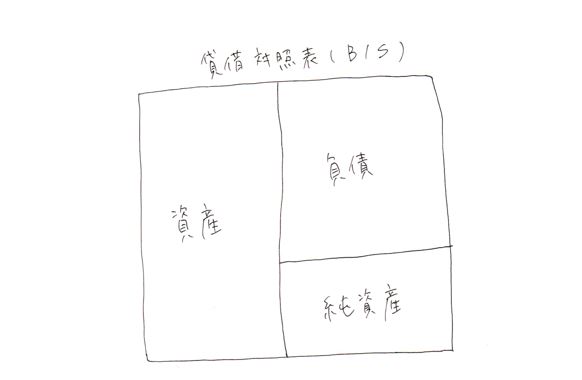 貸借対照表(B/S)
資産
負債
純資産